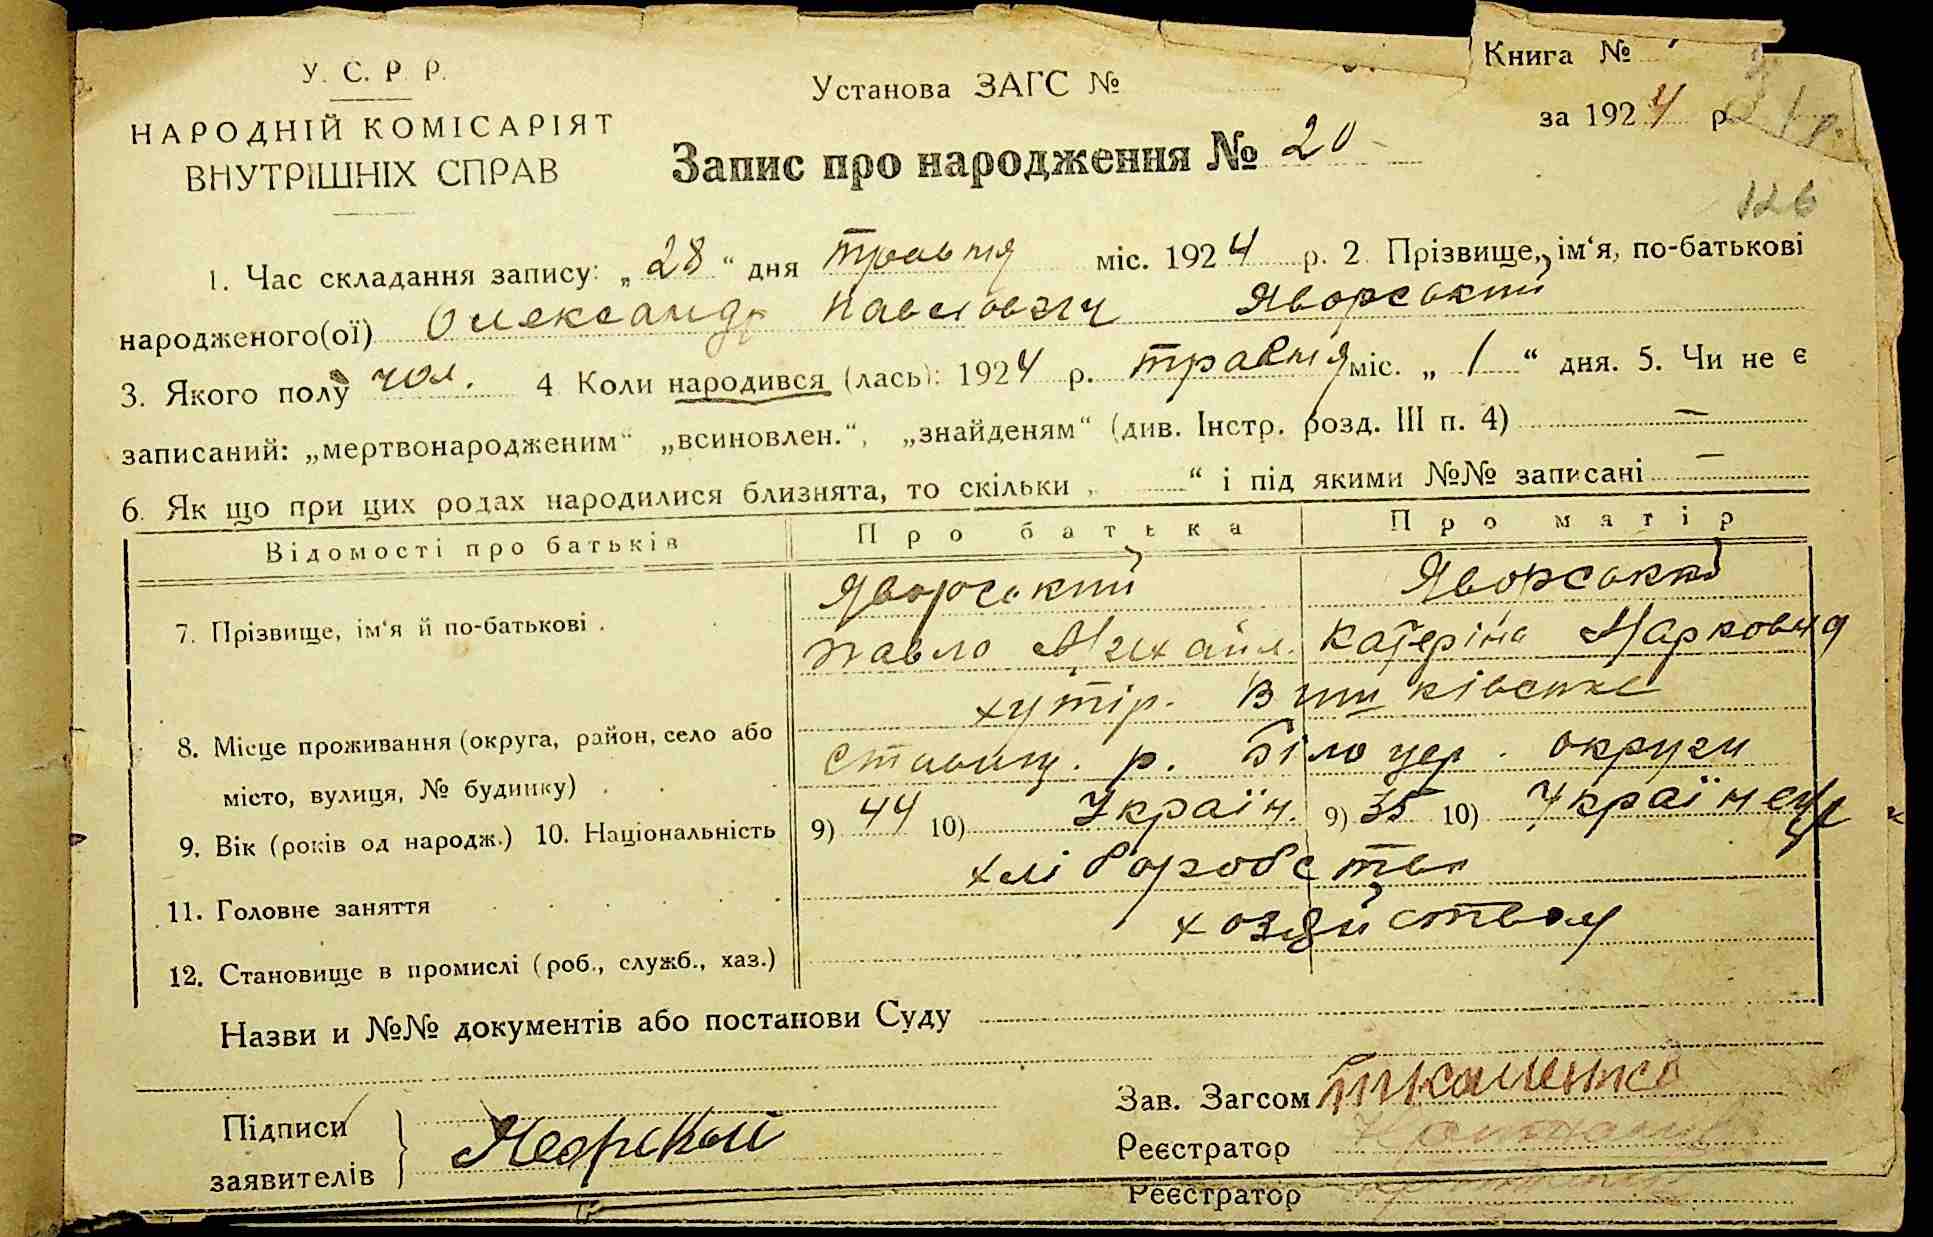 У. С. Р. Р.
НАРОДНІЙ КОМІСАРІЯТ
ВНУТРІШНІХ СПРАВ
Установа ЗАГС №
Книга №
за 1924 р.
Запис про народження № 20
126
1. Час складання запису: „28“ дня травня міс. 1924 р. 2. Прізвище, ім‘я, по-батькові
народженого(ої) Олександр Павлович Яворський
3. Якого полу чол. 4 Коли народився (лась): 1924 р. травня міс. „1“ дня. 5. Чи не є
записаний: „мертвонародженим“ „всиновлен.“, „знайденям“ (див. Інстр. розд. III п. 4) —
6. Як що при цих родах народилися близнята, то скільки „ “ і під якими №№ записані —
Відомості про батьків Про батька Про матір
7. Прізвище, ім‘я й по-батькові . Яворський
Павло Михайл. Катеріна Марковна
хутір.
8. Місце проживання (округа, район, село або
місто, вулиця, № будинку) . Ставищ. р. Білоцер. округи
9. Вік (років од народж.) 10. Національність 9) 44 10) Україн. 9) 35 10)
11. Головне заняття хліборобство
12. Становище в промислі (роб., служб., хаз.)
Назви и №№ документів або постанови Суду
Підписи
заявителів
Зав. Загсом Ткаменко
Реєстратор
Реєстратор